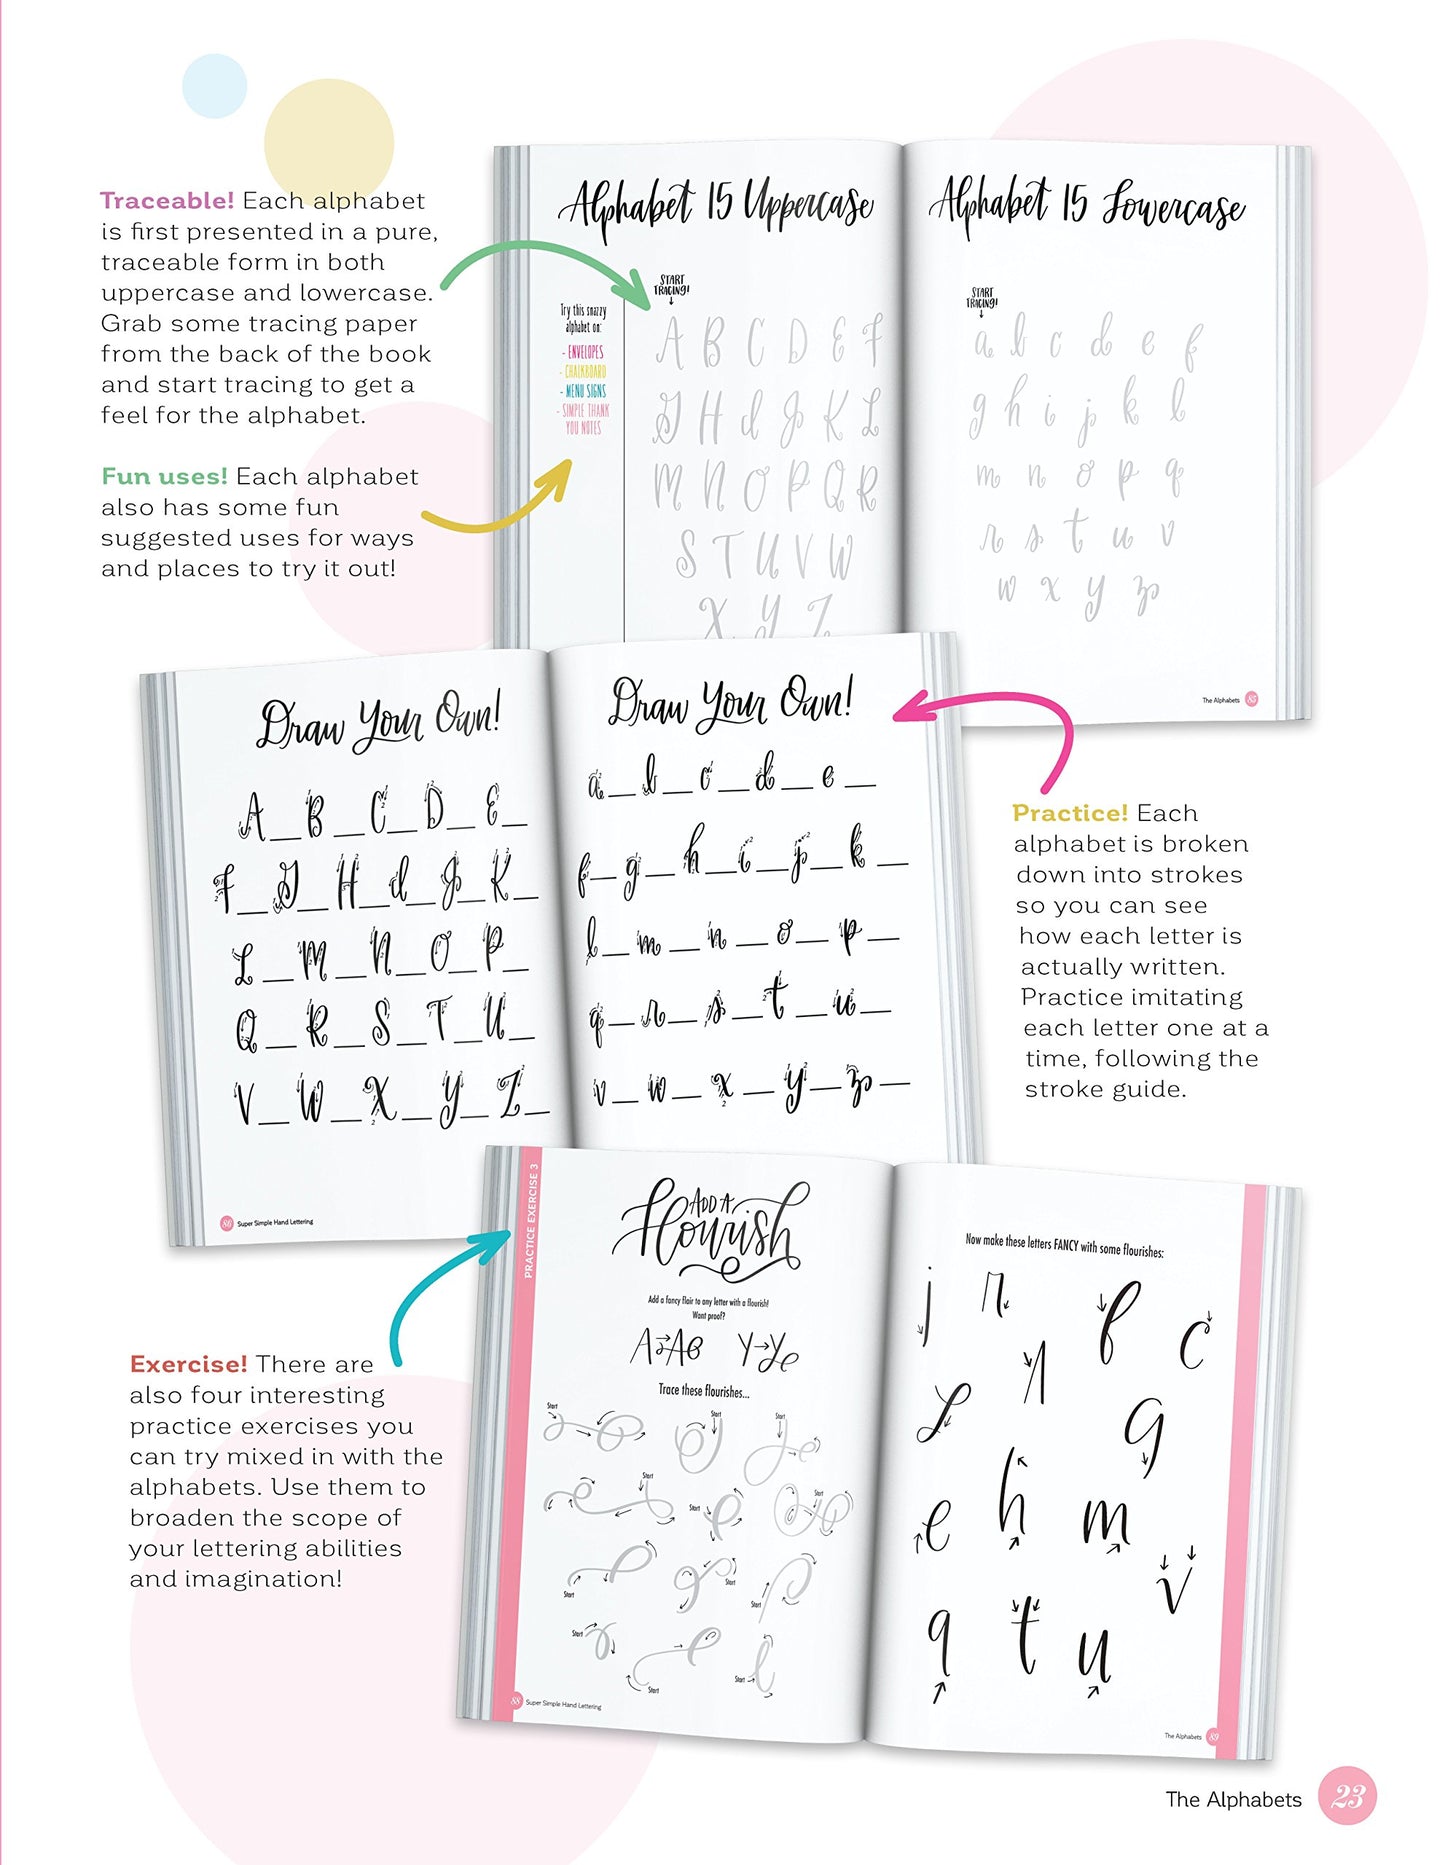 Traceable! Each alphabet
is first presented in a pure,
traceable form in both
uppercase and lowercase.
Grab some tracing paper
from the back of the book
and start tracing to get a
feel for the alphabet.
Fun uses! Each alphabet
also has some fun
suggested uses for ways
and places to try it out!
Alphabet 15 Uppercase
START
TRACING!
Try this snazzy
alphabet on:
- ENVELOPES
- CHALKBOARD
- MENU SIGNS
- SIMPLE THANK
YOU NOTES
A B C D E F
G H I J K L
M N O P Q R
S T U V W
X Y Z
Alphabet 15 Lowercase
START
TRACING!
a b c d e f
g h i j k l
m n o p q
r s t u v
w x y z
The Alphabets 85
Draw Your Own!
A B C D E
F G H I J K
L M N O P
Q R S T U
V W X Y Z
86 Super Simple Hand Lettering
Draw Your Own!
a b c d e
f g h i j k
l m n o p
q r s t u
v w x y z
Practice! Each
alphabet is broken
down into strokes
so you can see
how each letter is
actually written.
Practice imitating
each letter one at a
time, following the
stroke guide.
Exercise! There are
also four interesting
practice exercises you
can try mixed in with the
alphabets. Use them to
broaden the scope of
your lettering abilities
and imagination!
PRACTICE EXERCISE 3
ADD A
flourish
Add a fancy flair to any letter with a flourish!
Want proof?
A→A Y→Y
Trace these flourishes...
Start
Start
Start
Start
Start
Start
Start
Start
Start
Start
Start
Start
88 Super Simple Hand Lettering
Now make these letters FANCY with some flourishes:
j r b c
L A g
e h m
v
q t u
The Alphabets 89
The Alphabets 23